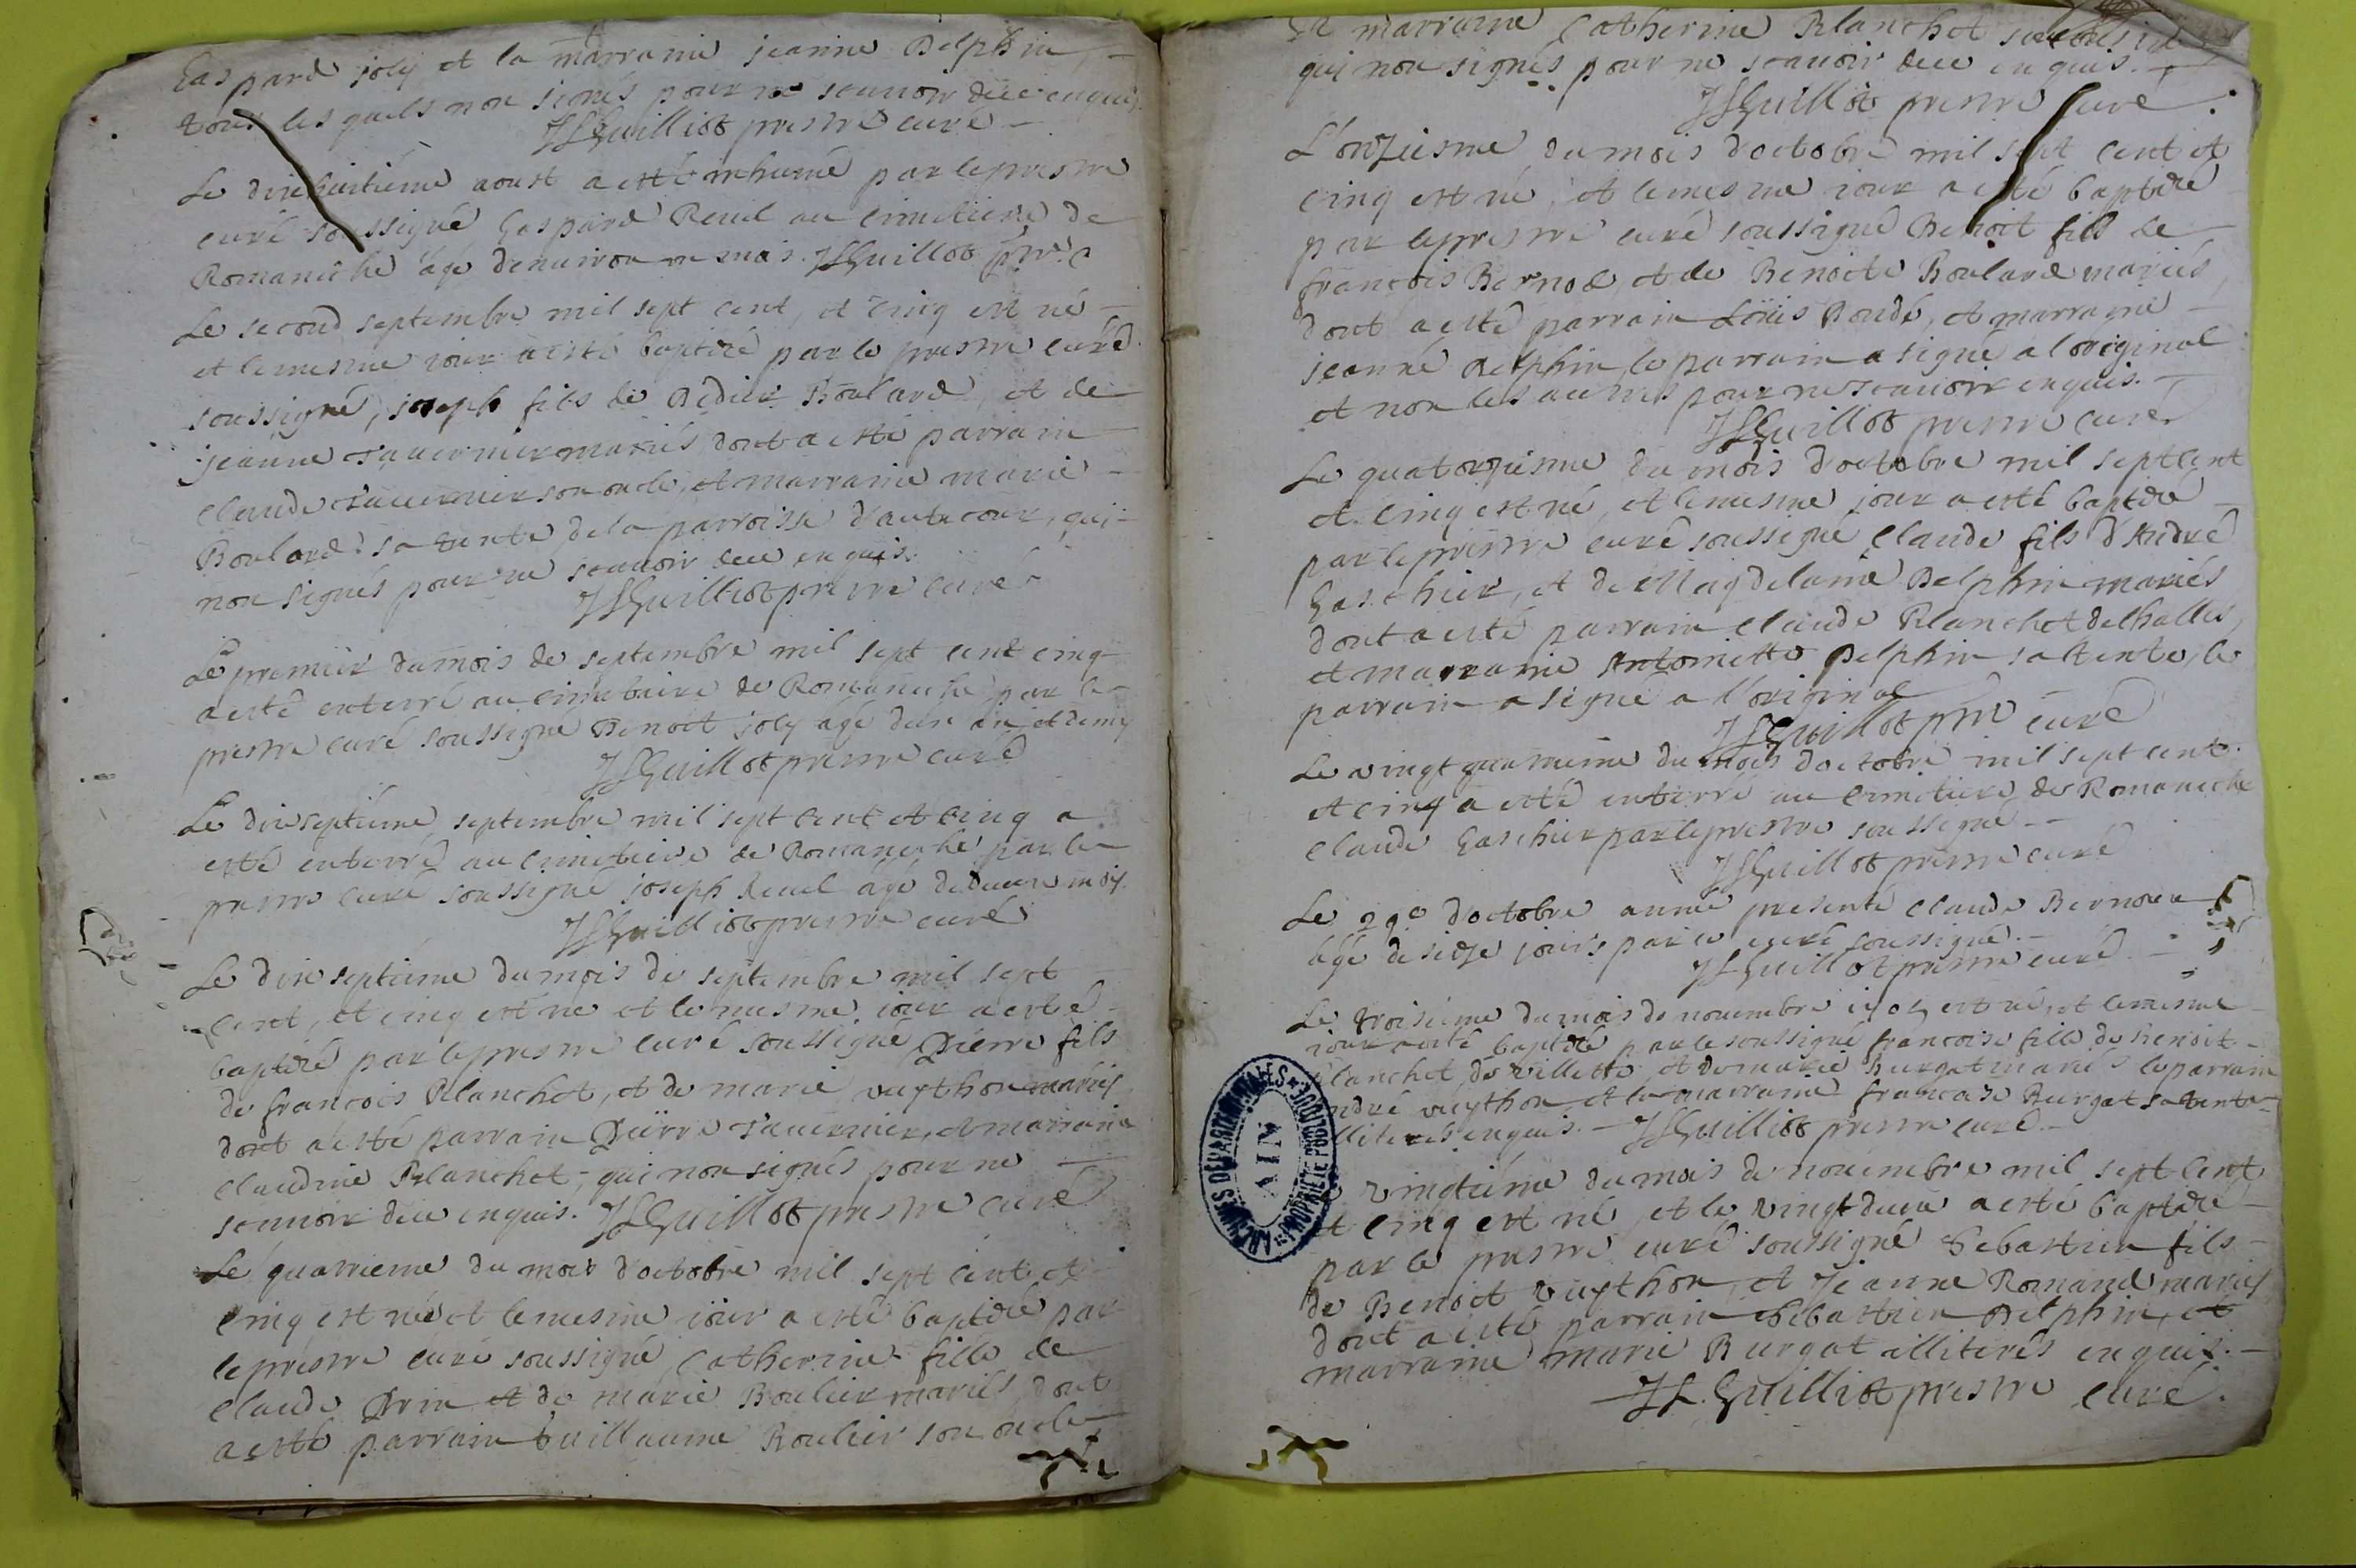 Gaspard joly et la marraine jeanne Delphin,
tous lesquels non signés pour ne scauoir dece enquis.
JLGuilliot prestre curé
Le dixhuitiéme aoust a esté inhumé par le prestre
curé soussigné Gaspard Reuil au cimetiere de
Romaneche agé denuiron un mois. JLGuillot
Le second septembre mil sept cent, et cinq est né
et le mesme iour a esté baptizé par le prestre curé
soussigné, joseph fils de Didier Boulard, et de
jeanne Tauernier mariés, dont a esté parrain
claude Tauernier son oncle, et marraine marie
Boulard sa tente de la parroisse d'autecour, qui
non signés pour ne scauoir dece enquis.
JLGuilliot prestre curé
Le premier du mois de septembre mil sept cent cinq
a esté enterré au cimetaire de Romaneche par le
prestre curé soussigné Benoit joly agé dun an et demy
JLGuillot prestre curé
Le dixseptiéme septembre mil sept cent et cinq a
esté enterré au cimetaire de Romaneche par le
prestre curé soussigné joseph Reuil agé de deux mois.
JLGuilliot prestre curé
Le dixseptiéme du mois de septembre mil sept
cent, et cinq est né et le mesme iour a esté
baptizé par le prestre curé soussigné Pierre fils
de francois Planchet, et de marie vuython mariés
dont a esté parrain Pierre Tauernier, et marraine
claudine Planchet, qui non signés pour ne
scauoir dece enquis. JLGuillot prestre curé
Le quatrieme du mois d'octobre mil sept cent et
cinq est née et le mesme iour a esté baptizé par
le prestre curé soussigné catherine fille de
claude Prin et de marie Boulier mariés, dont
a esté parrain Guillaume Boulier son oncle
Et marraine Catherine Planchet
qui non signés pour ne scauoir dece enquis.
JLGuilliot prestre curé
L'onziesme du mois d'octobre mil sept cent et
cinq est né, et le mesme iour a esté baptizé
par le prestre curé soussigné Benoit fils de
francois Bernod, et de Benoite Boulard mariés,
dont a esté parrain Loüis Bondé, et marragne
jeanne Delphin, le parrain a signé a l'original
et non les autres pour ne scauoir enquis.
JLGuillot prestre curé
Le quatorziesme du mois d'octobre mil sept cent
et cinq est né, et le mesme jour a esté baptizé
par le prestre curé soussigné claude fils d'André
Gaschier, et de Magdelaine Delphin mariés
dont a esté parrain claude Planchet
et marraine Antoinette Delphin sa tente, le
parrain a signé a l'original
JLGuillot pre curé
Le vingt quatrieme du mois d'octobre mil sept cent
et cinq a esté enterré au cimetiere de Romaneche
claude Gaschier par le prestre soussigné
JLGuillot prestre curé
Le 29e d'octobre année presente claude
agé de seize jours par le curé soussigné.
JLGuillot prestre curé
Le troisiéme du mois de nouembre 1705 est né, et le mesme
iour a esté baptizé par le soussigné francoise fille de Benoit
Planchet, de villette et de marie Burgat mariés le parrain
André vuython et la marraine francoise Burgat sa tente
illiterés enquis. JLGuilliot prestre curé
Le vingtiéme du mois de nouembre mil sept cent
et cinq est né, et le vingt deux a esté baptizé
par le prestre curé soussigné Sebastien fils
de Benoit vuython, et Jeanne Romand mariés
dont a esté parrain Sebastien Delphin, et
marraine marie Burgat illiterés enquis.
JL. Guilliot prestre curé.
ARCHIVES DÉPARTEMENTALES
AIN
PROPRIÉTÉ PUBLIQUE